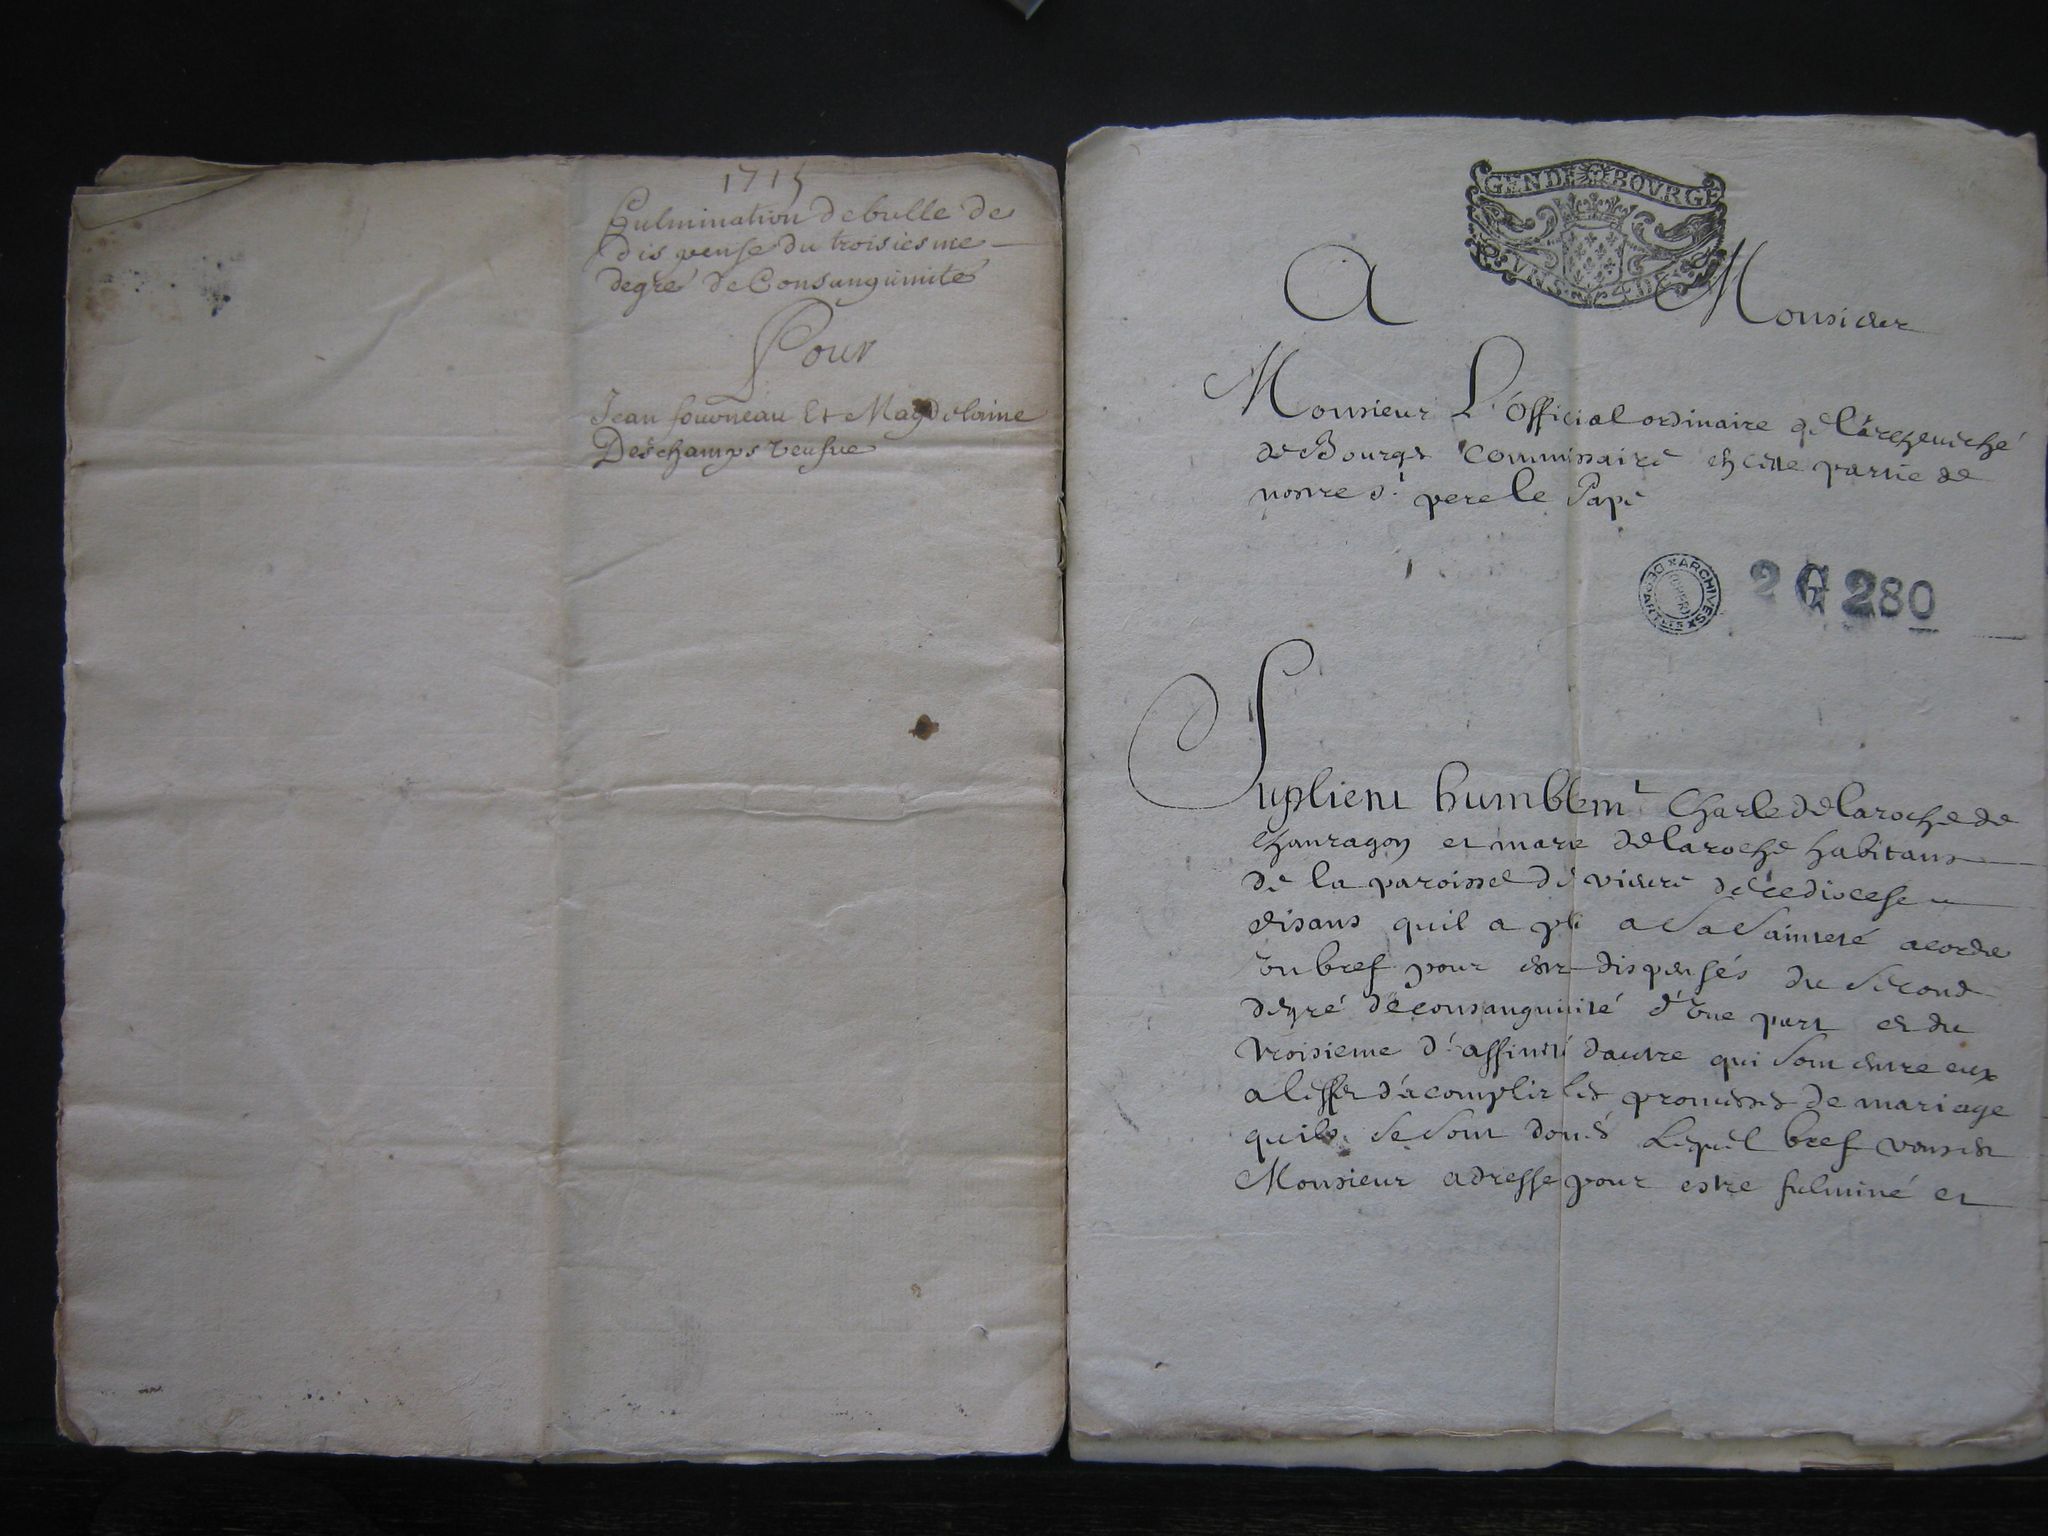 1715
Fulmination de bulle de
dispense du troisiesme
degré de Consanguinité
Pour
Jean fourneau Et Magdelaine
Deschamps veufve
GEN DE BOVRGE
A Monsieur
Monsieur L'Official ordinaire de l'archeveché
de Bourges Commissaire en cette partie de
nostre st pere le Pape
ARCHIVES DEPARTles
CHER
2 G 280
Suplient humblemt Charle de laroche de
chauragon et marie de laroche habitans
de la paroisse de de ce diocese
disans quil a plu a Sa Sainteté acorder
Son bref pour estre dispensés du Second
degré de consanguinité d'une part et du
troisieme d'affinité dautre qui Sont entre eux
a leffet d'acomplir les promesses de mariage
quils Se Sont donés Lequel bref vous est
Monsieur adresse pour estre fulminé et